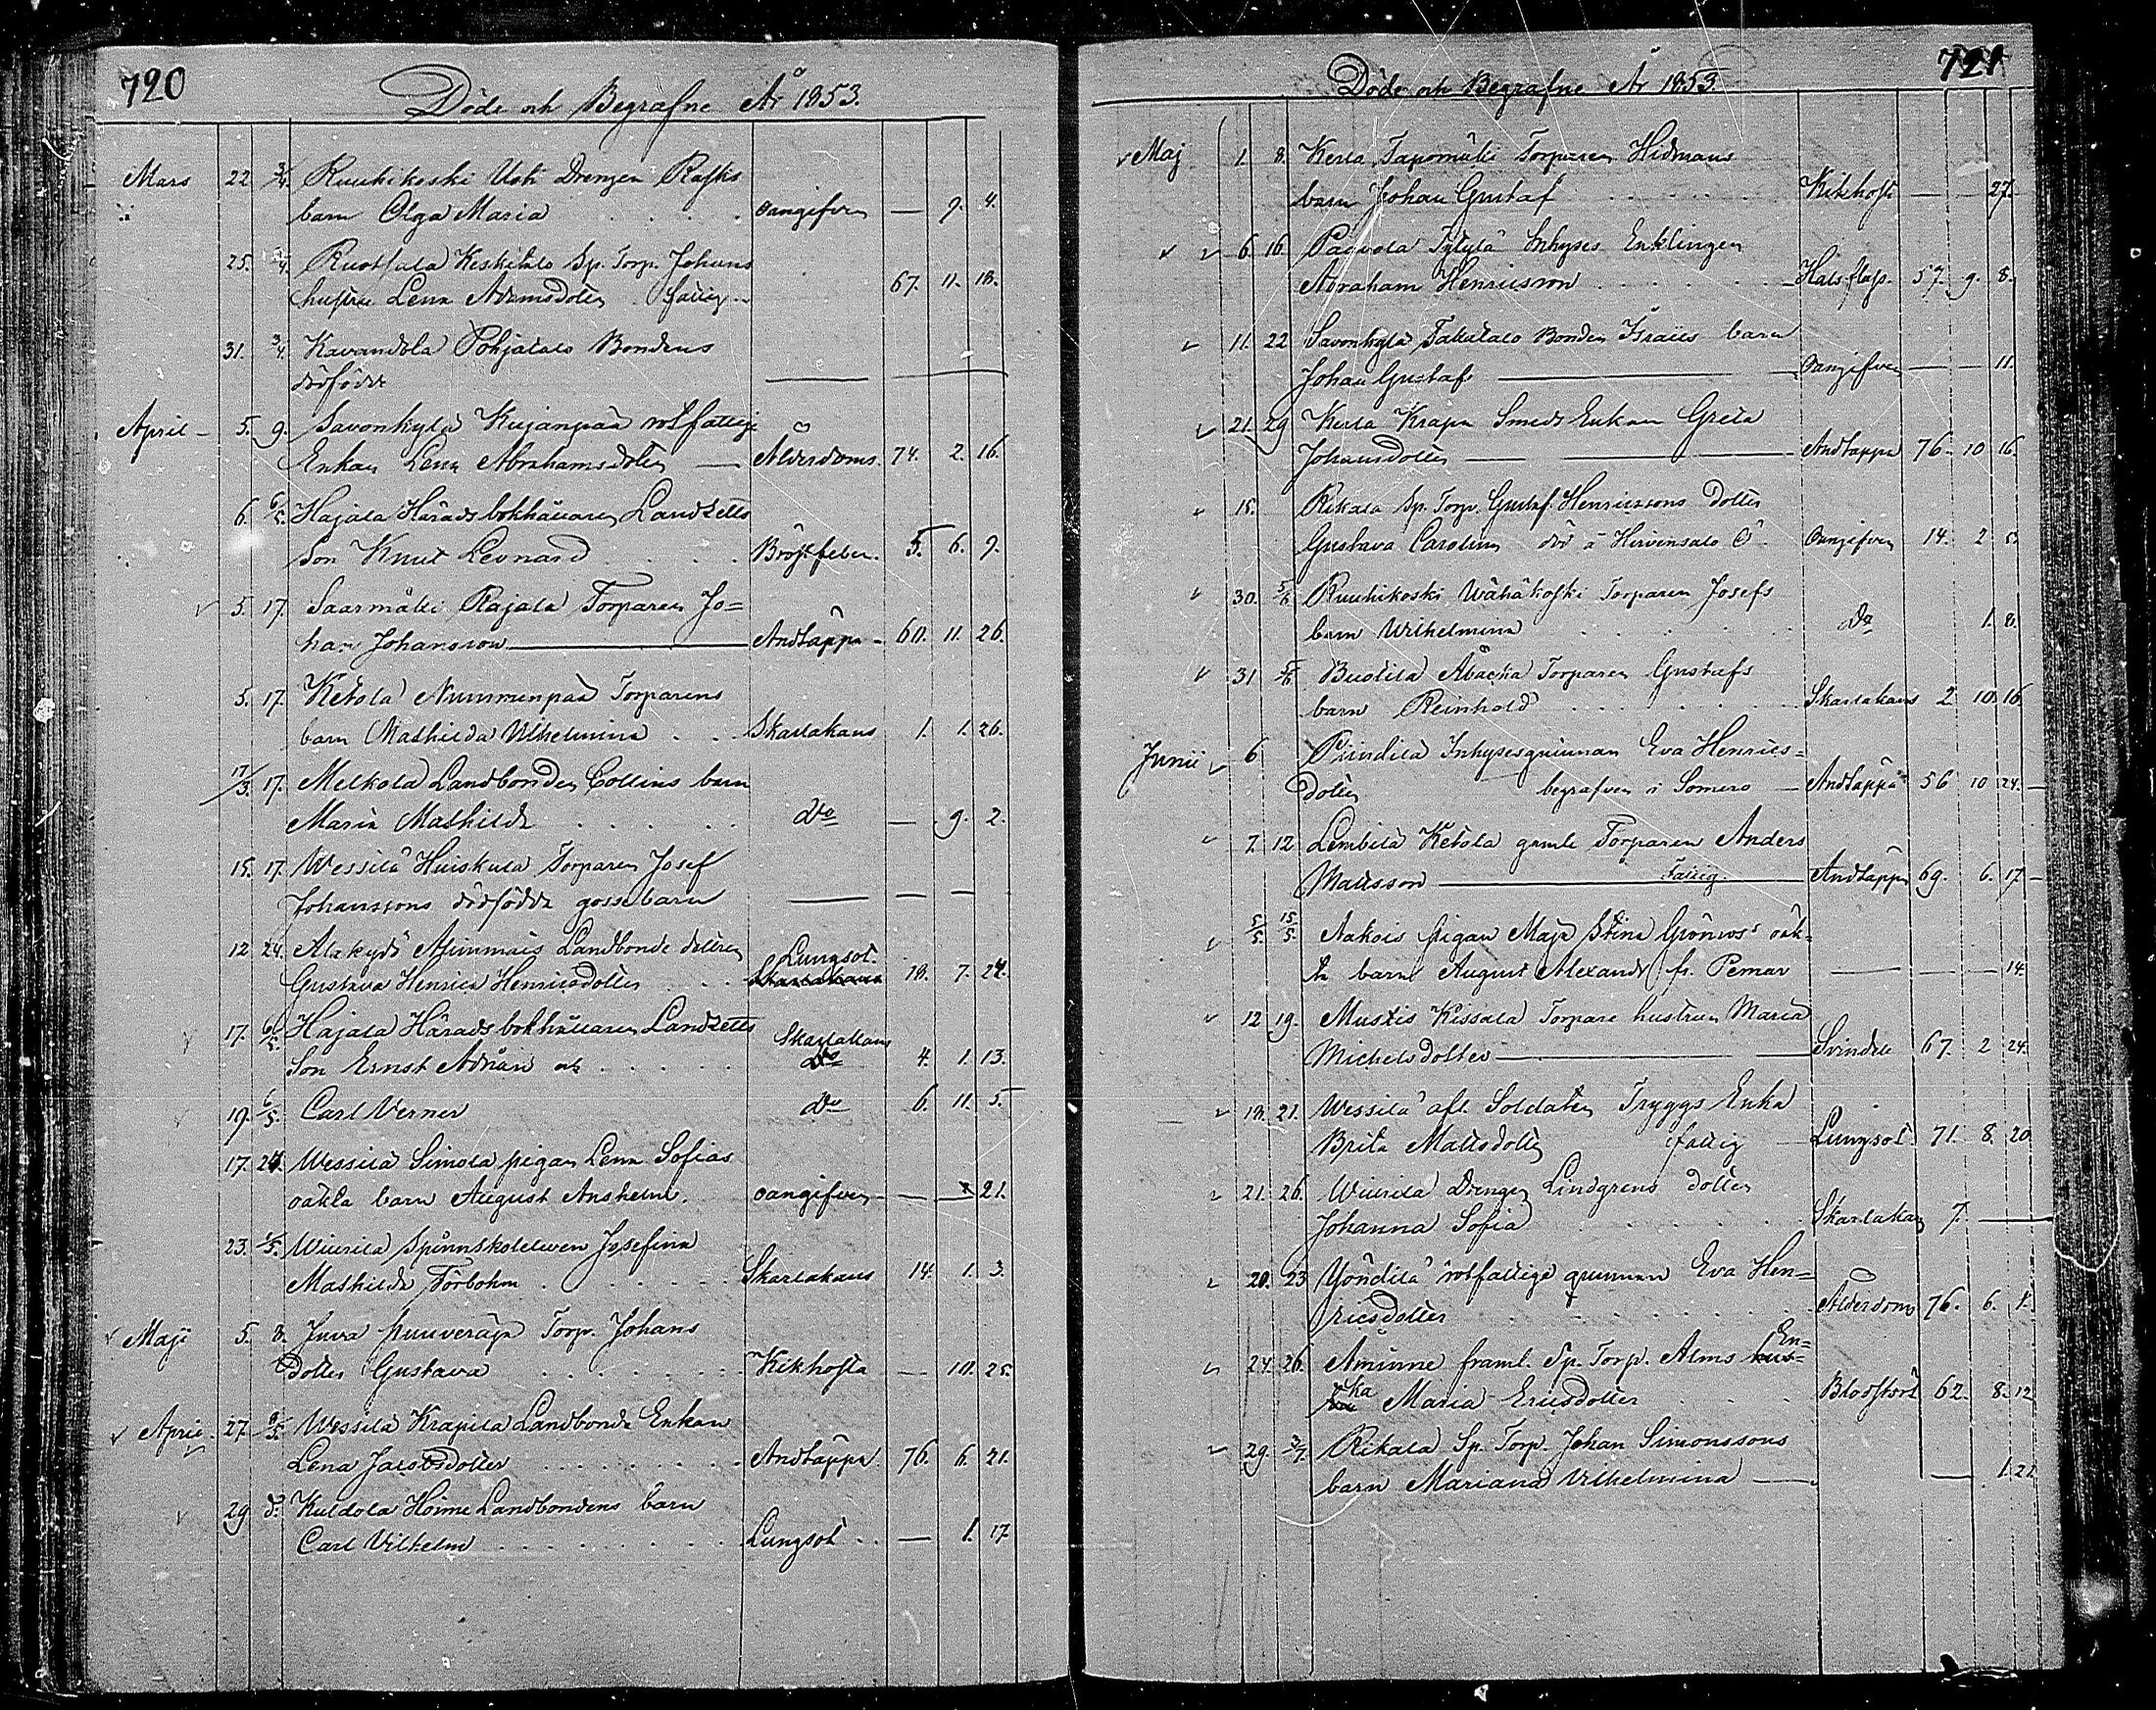 720
Döde och Begrafne År 1853.
Mars 22 3/4 Ruuhikoski Usk Drengen Rasks
barn Olga Maria . . . . oangifven — 9. 4.
25. 3/4 Ruotsala Keskitalo Sp. Torp. Johans
hustru Lena Adamsdotter fattig 67. 11. 18.
31. 3/4. Kavandola Pohjatalo Bondens
dödfödde — —
April 5. 9. Savonkylä Kujanpää rotfattige
Enkan Lena Abrahamsdotter — Ålderdoms. 74. 2. 16.
6. 6/5. Hajala Häradsbokhållaren Landzetts
Son Knut Leonard . . . . Bröstfeber. 5. 6. 9.
5. 17. Saarmäki Rajala Torparen Jo=
han Johansson — Andtäppa 60. 11. 26.
5. 17. Ketola Nummenpää Torparens
barn Mathilda Wilhelmina . . Skarlakans 1. 1. 26.
17/3. 17. Melkola Landbonden Collins barn
Maria Mathilda . . . . Do — 9. 2.
15. 17. Wessilä Huiskula Torparen Josef
Johanssons dödfödde gossebarn — — —
12 24. Alakydö Landbonde dottren Lungsot.
Gustava Henrica Henricsdotter . . . Skarlakans 18. 7. 24.
17. 6/5. Hajala Häradsbokhållaren Landzetts Skarlakans
Son Ernst Adrian och . . . . Do 4. 1. 13.
19. 6/5. Carl Verner Do 6. 11. 5.
17. 24. Wessilä Simola pigan Lena Sofias
oäkta barn August Anshelm. oangifven — — 21.
23. 1/5. Wiurila Spinnskoleleven Josefina
Mathilda Törbohm . . . . Skarlakans 14. 1. 3.
Maji 5. 8. Juva Torp. Johans
dotter Gustava . . . . Kikhosta — 10. 25.
April. 27. 8/5. Wessilä Krapila Landbonde Enkan
Lena Jacobsdotter . . . . Andtäppa 76. 6. 21.
29 d. Kuldola Hoime Landbondens barn
Carl Vilhelm . . . . Lungsot . . — 1. 17
721
Döde och Begrafne År 1853.
Maj 1. 8. Kerla Tapomäki Torparen Hidmans
barn Johan Gustaf . . . . Kikhost — — 27.
6 16. Paavola Tytylä Inhyses Enklingen
Abraham Henricsson . . . . Halsflass. 57. 9. 8.
11. 22 Savonkylä Takatalo Bonden Israels barn
Johan Gustaf — oangifven — — 11.
21. 29 Kerla Krapu Smeds Enkan Greta
Johansdotter — Andtäppa 76. 10 16.
15. Rikala Sp. Torp. Gustaf Henricssons dotter
Gustava Carolina död å Hirvensalo Ö oangifven 14. 2 5.
30. 5/6 Ruuhikoski Wähäkoski Torparen Josefs
barn Wilhelmina . . . . Do 1. 8.
31 5/6 Buotila Åbacka Torparen Gustafs
barn Reinhold . . . . Skarlakans 2 10. 16.
Junii 6 Pindilä Inhysesqvinnan Eva Henrics=
dotter begrafven i Somero — Andtäppa 56 10 24.
7. 12 Lembilä Ketola gamle Torparen Anders
Matsson — Fattig. Andtäppa 69. 6. 17.
5/5. 15/5. Aakois pigan Maja Stina Grönros's oäk=
ta barn August Alexander fr. Pemar — — — 14.
12 19. Mustis Kissala Torpare hustrun Maria
Michelsdotter — Svindel 67. 2 24.
18. 21. Wessilä afl. Soldaten Tryggs Enka
Brita Matsdotter fattig Lungsot 71. 8. 20
21. 26. Wiurila Drengen Lindgrens dotter
Johanna Sofia . . . . Skarlakan 7. —
20. 23 Yöndilä rotfattige qvinnan Eva Hen=
ricsdotter . . . . Ålderdoms 76. 6. 1.
24. 26. Åminne framl. Sp. Torp. Alms hus= En=
tru ka Maria Ericsdotter . . Blodstört 62. 8. 12
29. 3/7. Rikala Sp. Torp. Johan Simonssons
barn Mariana Vilhelmina — — 1. 22